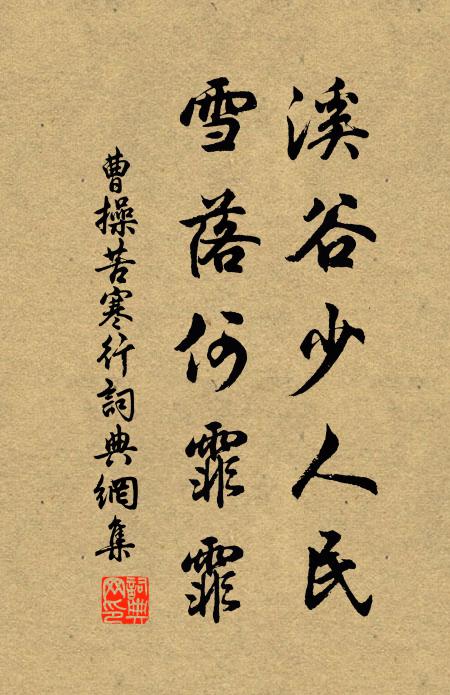 溪谷少人民
雪落何霏霏
曹操苦寒行詞典網集
詞典
网印